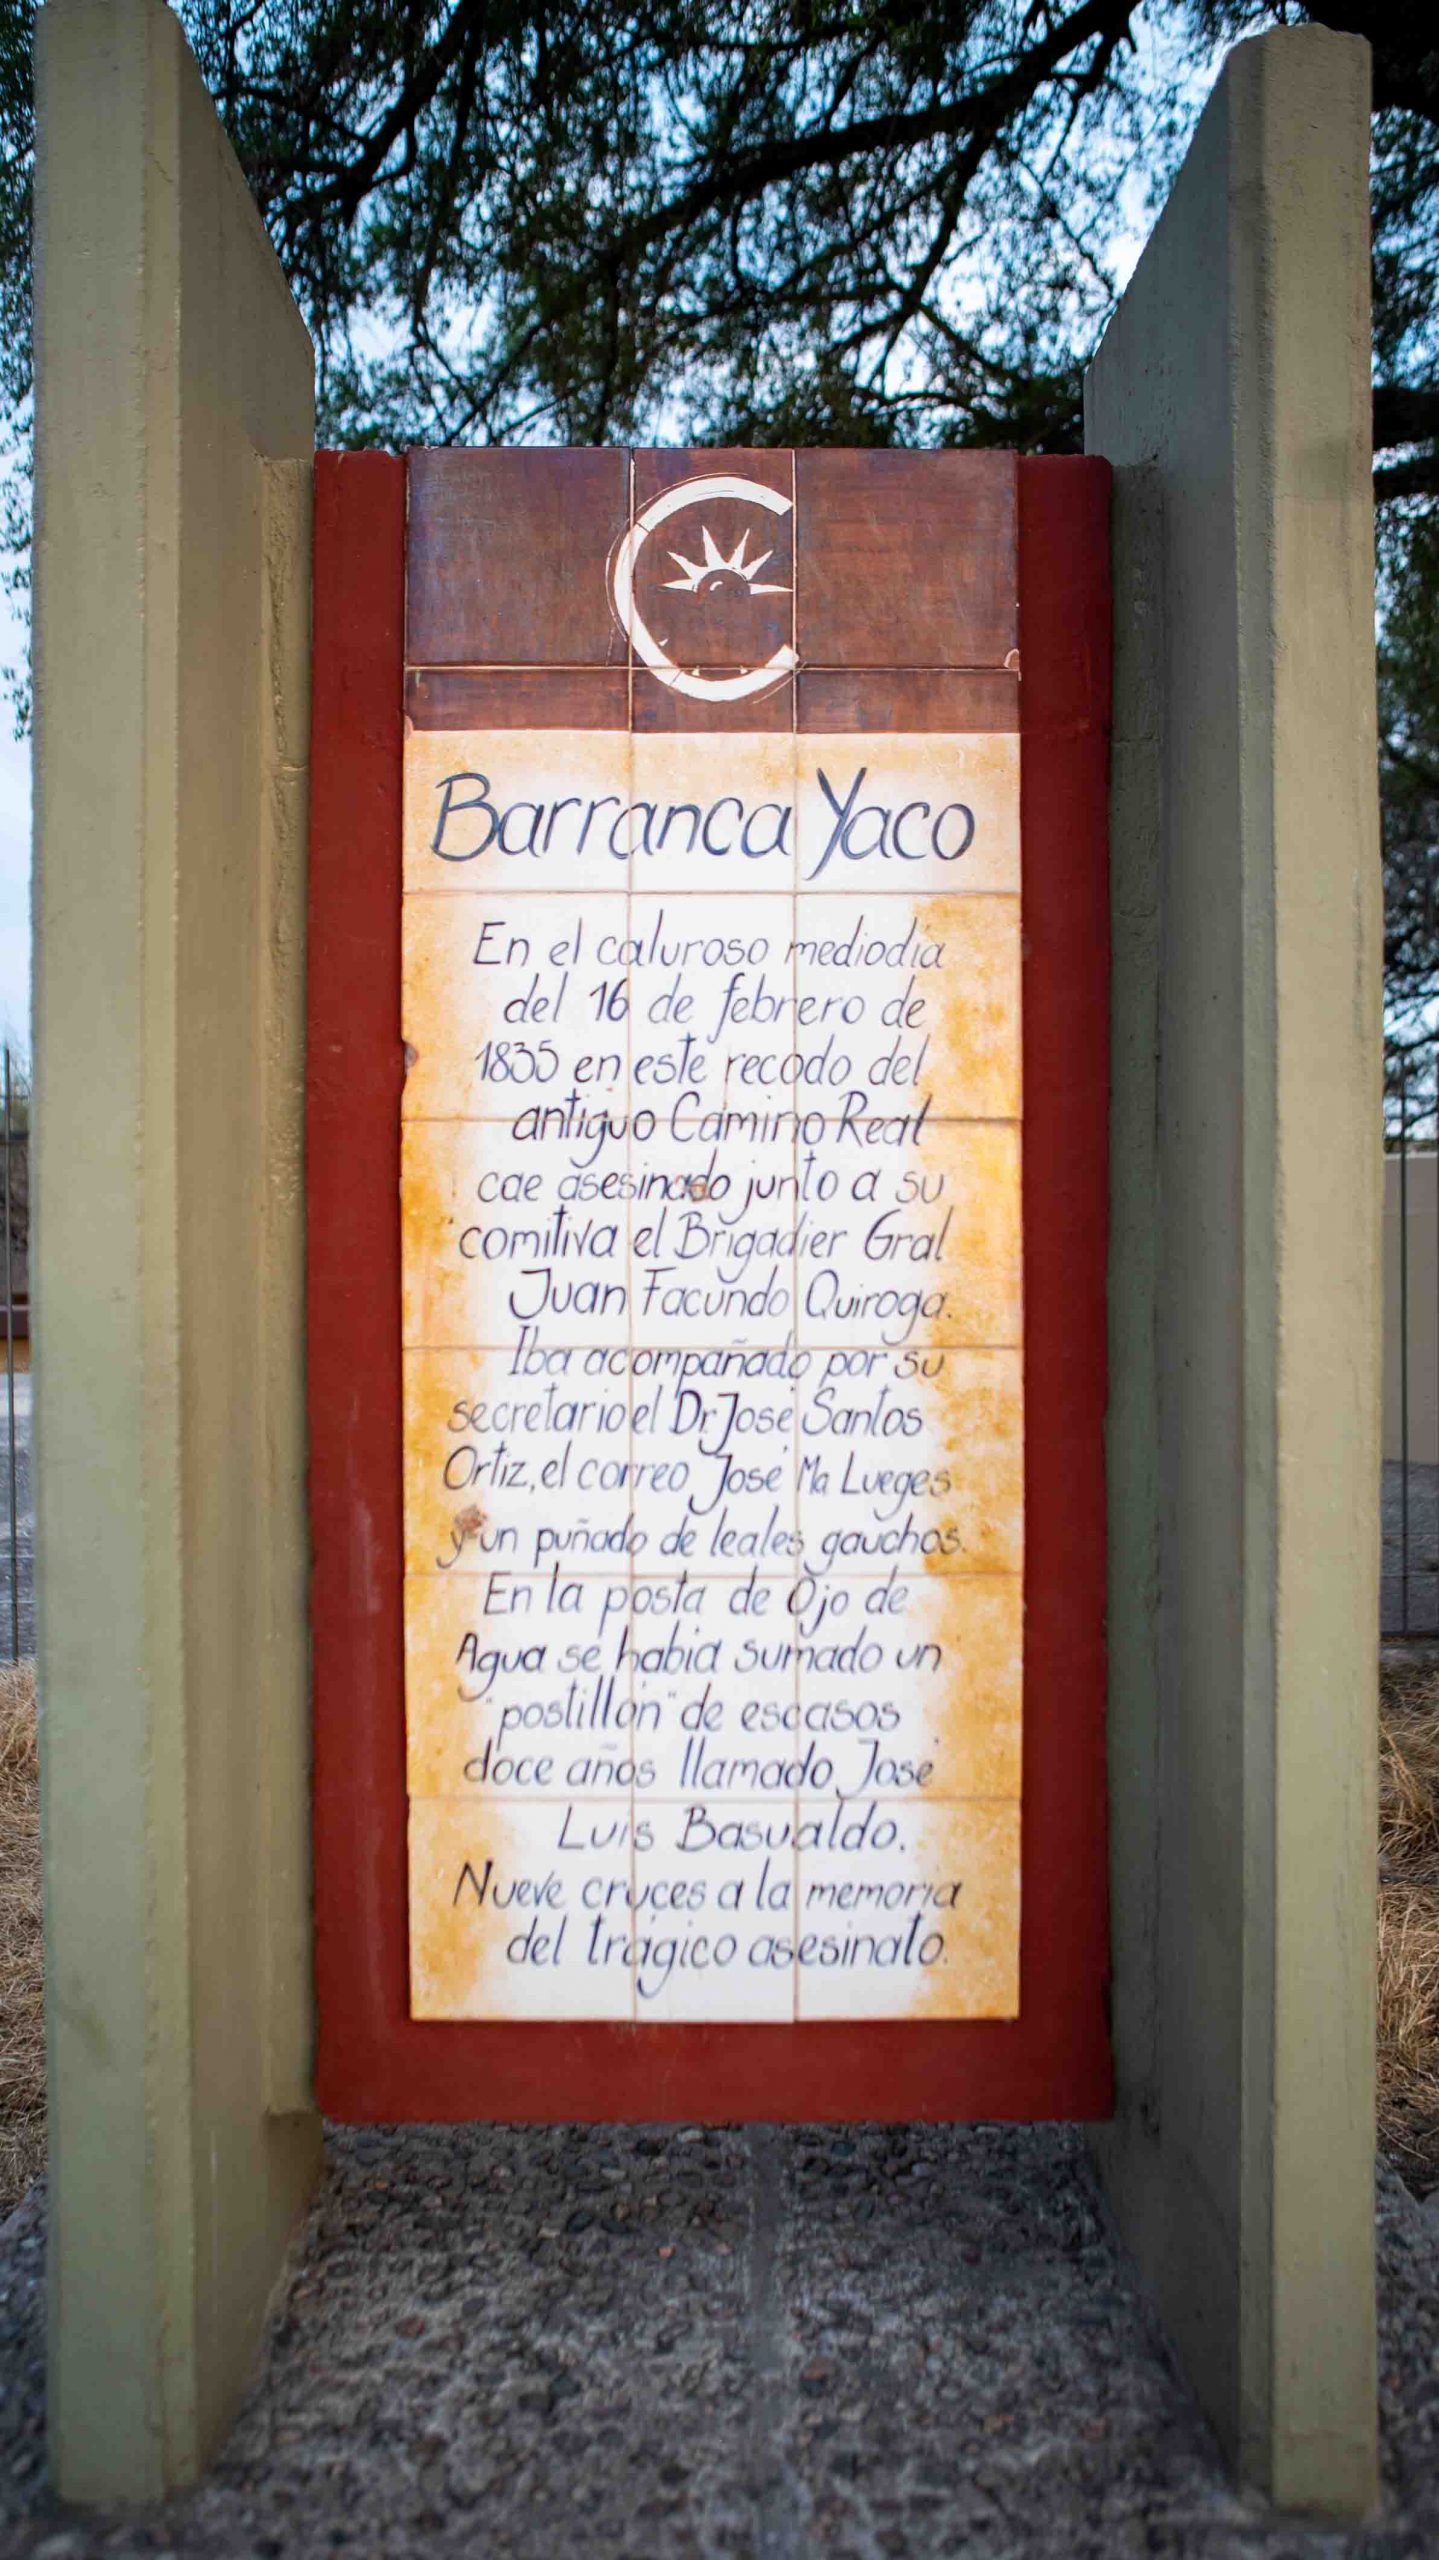 Barranca Yaco
En el caluroso mediodía
del 16 de febrero de
1835 en este recodo del
antiguo Camino Real
cae asesinado junto a su
comitiva el Brigadier Gral
Juan Facundo Quiroga.
Iba acompañado por su
secretario el Dr. José Santos
Ortiz, el correo José Ma Lueges
y un puñado de leales gauchos.
En la posta de Ojo de
Agua se había sumado un
"postillón" de escasos
doce años llamado José
Luis Basualdo.
Nueve cruces a la memoria
del trágico asesinato.